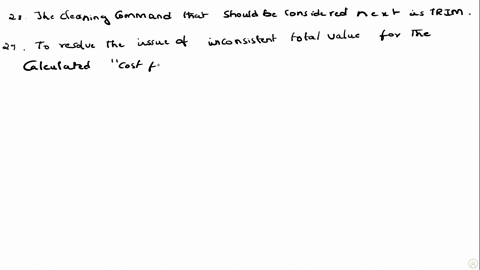 23. The cleaning Command that should be considered next is TRIM.
24. To resolve the issue of inconsistent total value for the
Calculated "Cost f